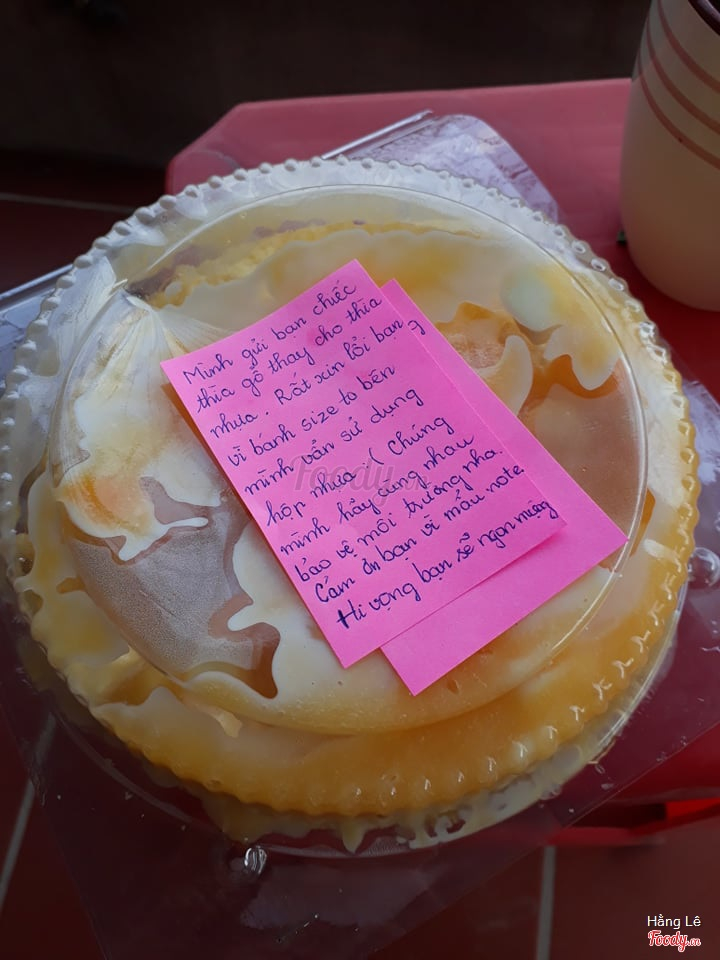 Mình gửi bạn chiếc
thìa gỗ thay cho thìa
nhựa. Rất xin lỗi bạn
vì bánh size to bên
mình vẫn sử dụng
hộp nhựa :( Chúng
mình hãy cùng nhau
bảo vệ môi trường nha.
Cảm ơn bạn vì mẩu note
Hi vọng bạn sẽ ngon miệng
Foody.vn
Hằng Lê
Foody.vn